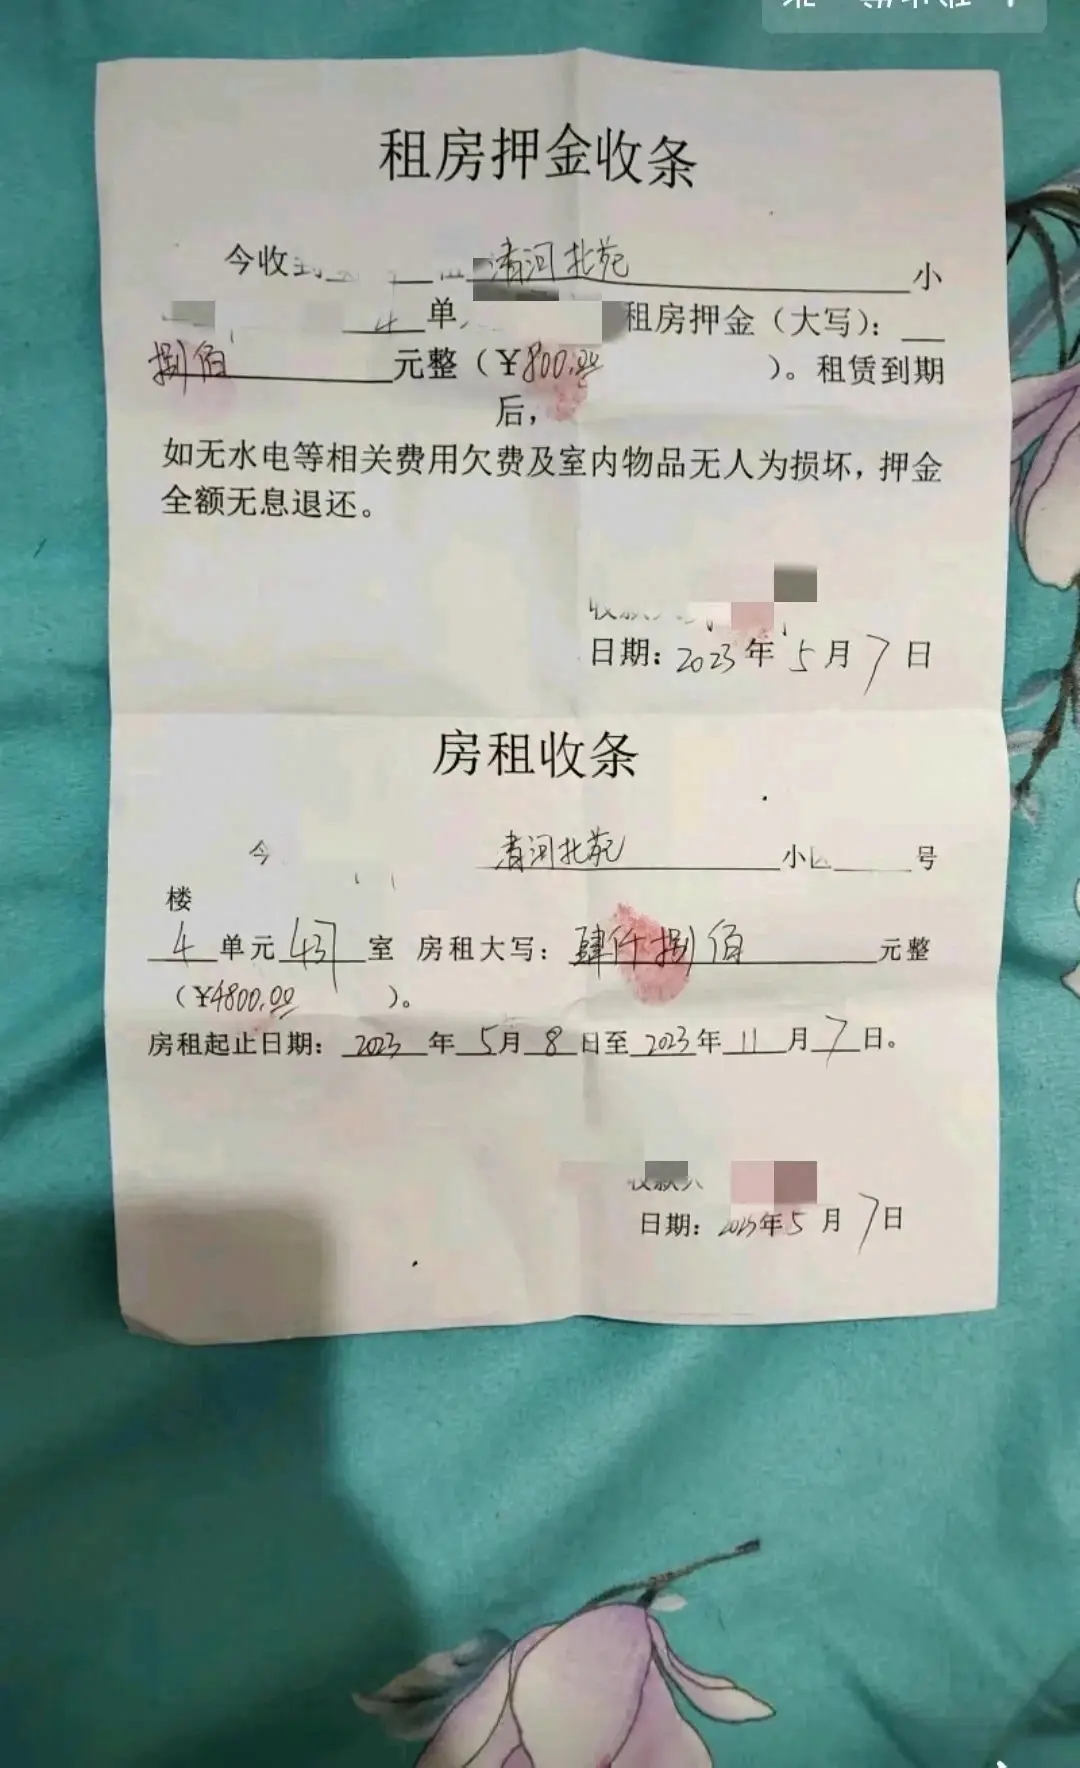 租房押金收条
今收 清河北苑 小
4 单 租房押金（大写）：
捌佰 元整（￥800.00 ）。租赁到期
后，
如无水电等相关费用欠费及室内物品无人为损坏，押金
全额无息退还。
日期：2023 年 5 月 7 日
房租收条
今 清河北苑 小 号
楼
4 单元 437 室 房租大写：肆仟捌佰 元整
（￥4800.00 ）。
房租起止日期：2023 年 5 月 8 日至 2023 年 11 月 7 日。
收款人
日期：2023年 5 月 7 日